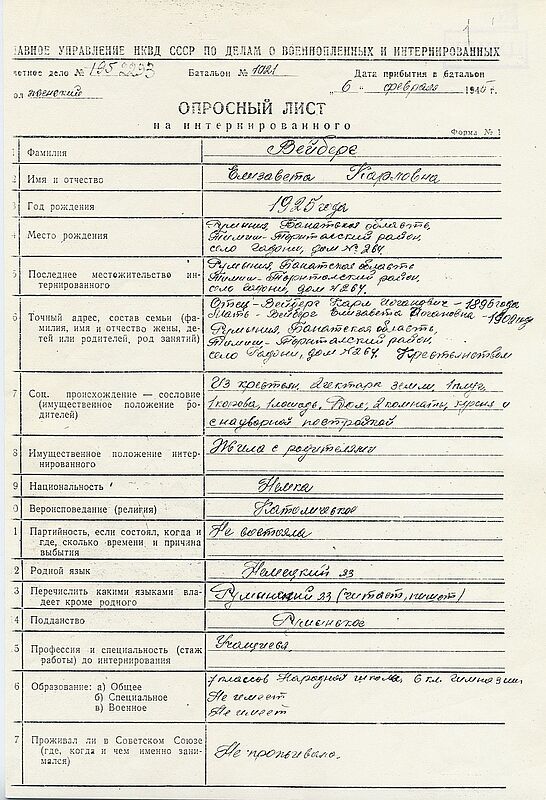 ЛАВНОЕ УПРАВЛЕНИЕ НКВД СССР ПО ДЕЛАМ О ВОЕННОПЛЕННЫХ И ИНТЕРНИРОВАННЫХ
четное дело № 1952233 Батальон № 1021 Дата прибытия в батальон
ол женский „ 6 „ февраля 1945 г.
ОПРОСНЫЙ ЛИСТ
на интернированного
Форма № 1
1 Фамилия Вейберг
2 Имя и отчество Елизавета Карловна
3 Год рождения 1925 года
4 Место рождения Румыния, Банатская область,
Тимиш-Торитальский район,
село Гадони, дом № 264.
5 Последнее местожительство ин-
тернированного
Румыния, Банатская область
Тимиш-Торитальский район,
село Гадони, дом № 264.
6 Точный адрес, состав семьи (фа-
милия, имя и отчество жены, де-
тей или родителей, род занятий)
Отец - Вейберг Карл Иоганович - 1896 года
Мать - Вейберг Елизавета Иогановна - 1900 года
Румыния, Банатская область,
Тимиш-Торитальский район,
село Гадони, дом № 264. Крестьянством
7 Соц. происхождение — сословие
(имущественное положение ро-
дителей)
Из крестьян, 2 гектара земли, 1 плуг,
1 корова, 1 лошадь. Дом; 2 комнаты, кухня и
с надворной постройкой
8 Имущественное положение интер-
нированного
Жила с родителями
9 Национальность Немка
0 Вероисповедание (религия) Католическое
1 Партийность, если состоял, когда и
где, сколько времени и причина
выбытия
Не состояла
2 Родной язык Немецкий яз
3 Перечислить какими языками вла-
деет кроме родного
Румынский яз (читает, пишет)
4 Подданство Румынское
5 Профессия и специальность (стаж
работы) до интернирования
Учащаяся
6 Образование: а) Общее
б) Специальное
в) Военное
классов Народной школы, 6 кл. гимназии
Не имеет
Не имеет
7 Проживал ли в Советском Союзе
(где, когда и чем именно зани-
мался)
Не проживала.